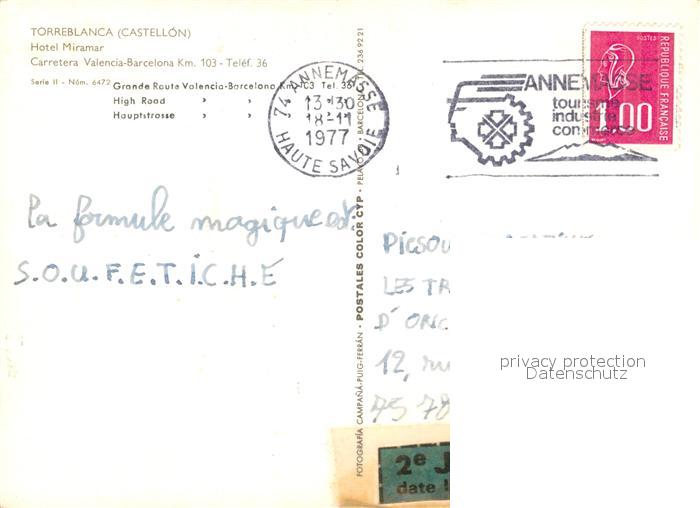 TORREBLANCA (CASTELLÓN)
Hotel Miramar
Carretera Valencia-Barcelona Km. 103 - Teléf. 36
Serie II - Núm. 6472
Grande Route Valencia-Barcelona Km. 103 Tel. 36
High Road » »
Hauptstrasse » »
74 ANNEMASSE
13-30
18-11
1977
HAUTE SAVOIE
ANNEMASSE
tourisme
industrie
commerce
POSTES
REPUBLIQUE FRANÇAISE
1.00
la formule magique est:
S.O.U.F.E.T.I.C.H.E
FOTOGRAFÍA CAMPAÑÁ-PUIG-FERRÁN - POSTALES COLOR CYP - BARCELONA 236 92 21
PICSOU
LES TR
D'ONC
12, ru
75 78
privacy protection
Datenschutz
2e J
date l